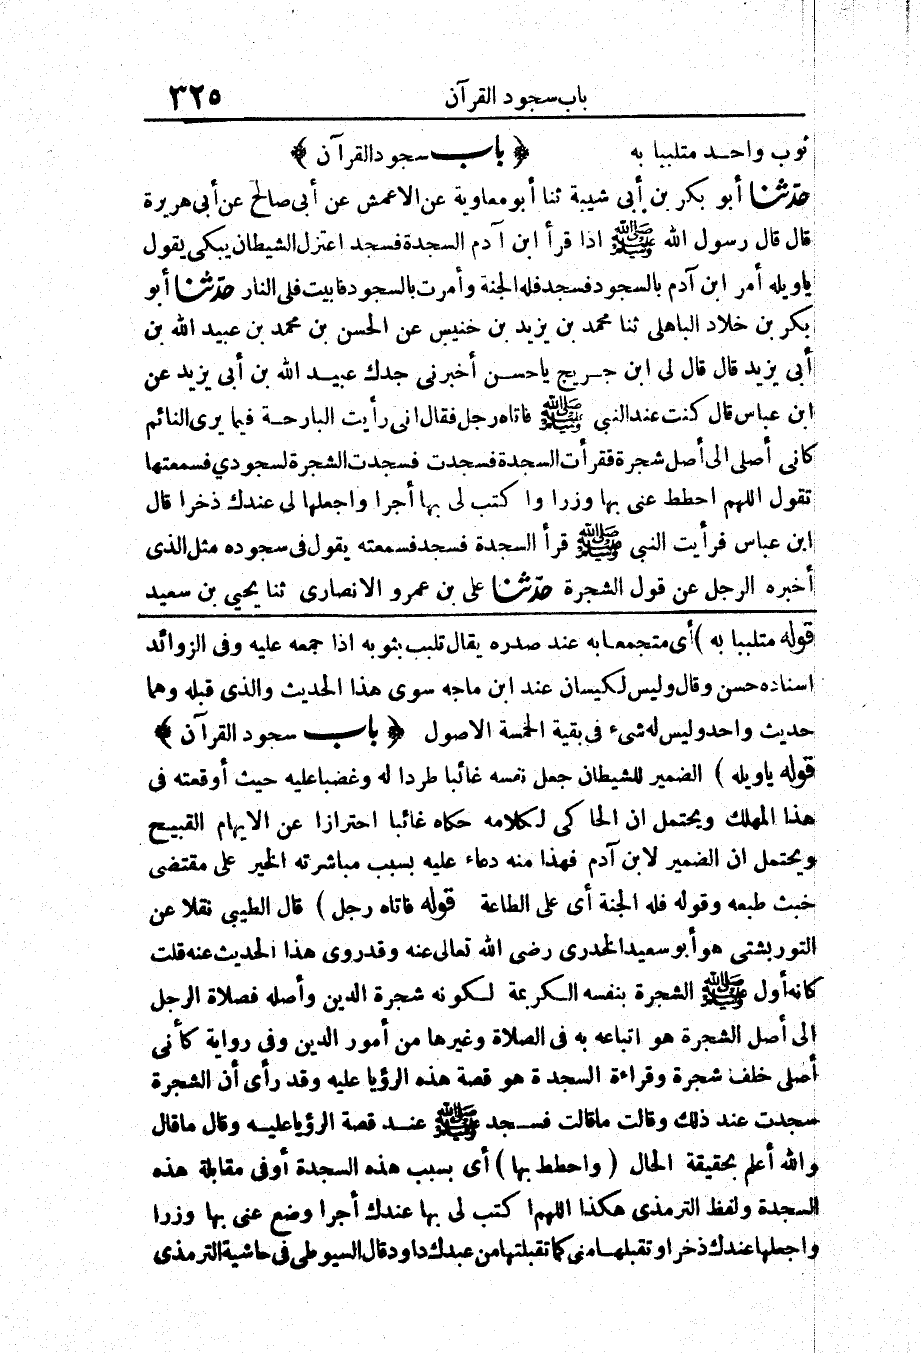 باب سجود القرآن ٣٢٥
ثوب واحد متلببا به ﴿ باب سجود القرآن ﴾
حدّثنا أبو بكر بن أبى شيبة ثنا أبو معاوية عن الاعمش عن أبى صالح عن أبى هريرة
قال قال رسول الله ﷺ اذا قرأ ابن آدم السجدة فسجد اعتزل الشيطان يبكى يقول
ياويله أمر ابن آدم بالسجود فسجد فله الجنة وأمرت بالسجود فابيت فلى النار حدّثنا أبو
بكر بن خلاد الباهلى ثنا محمد بن يزيد بن خنيس عن الحسن بن محمد بن عبيد الله بن
أبى يزيد قال قال لى ابن جريج ياحسن أخبرنى جدك عبيد الله بن أبى يزيد عن
ابن عباس قال كنت عند النبى ﷺ فاتاه رجل فقال انى رأيت البارحة فيما يرى النائم
كانى أصلى الى أصل شجرة فقرأت السجدة فسجدت فسجدت الشجرة لسجودي فسمعتها
تقول اللهم احطط عنى بها وزرا واكتب لى بها أجرا واجعلها لى عندك ذخرا قال
ابن عباس فرأيت النبى ﷺ قرأ السجدة فسجد فسمعته يقول فى سجوده مثل الذى
أخبره الرجل عن قول الشجرة حدّثنا على بن عمرو الانصارى ثنا يحيى بن سعيد
قوله متلببا به ) أى متجمعا به عند صدره يقال تلبب بثوبه اذا جمعه عليه وفى الزوائد
اسناده حسن وقال وليس لكيسان عند ابن ماجه سوى هذا الحديث والذى قبله وهما
حديث واحد وليس له شىء فى بقية الخمسة الاصول ﴿ باب سجود القرآن ﴾
قوله ياويله ) الضمير للشيطان جعل نفسه غائبا طردا له وغضبا عليه حيث أوقعته فى
هذا المهلك ويحتمل ان الحاكى لكلامه حكاه غائبا احترازا عن الايهام القبيح
ويحتمل ان الضمير لابن آدم فهذا منه دعاء عليه بسبب مباشرته الخير على مقتضى
خبث طبعه وقوله فله الجنة أى على الطاعة قوله فاتاه رجل ) قال الطيبى نقلا عن
التوربشتى هو أبو سعيد الخدرى رضى الله تعالى عنه وقد روى هذا الحديث عنه قلت
كانه أول ﷺ الشجرة بنفسه الكريمة لكونه شجرة الدين وأصله فصلاة الرجل
الى أصل الشجرة هو اتباعه به فى الصلاة وغيرها من أمور الدين وفى رواية كأنى
أصلى خلف شجرة وقراءة السجدة هو قصة هذه الرؤيا عليه وقد رأى أن الشجرة
سجدت عند ذلك وقالت ماقالت فسجد ﷺ عند قصة الرؤيا عليه وقال ماقال
والله أعلم بحقيقة الحال ( واحطط بها ) أى بسبب هذه السجدة أو فى مقابلة هذه
السجدة ولفظ الترمذى هكذا اللهم اكتب لى بها عندك أجرا وضع عنى بها وزرا
واجعلها عندك ذخرا وتقبلها منى كما تقبلتها من عبدك داود قال السيوطى فى حاشية الترمذى